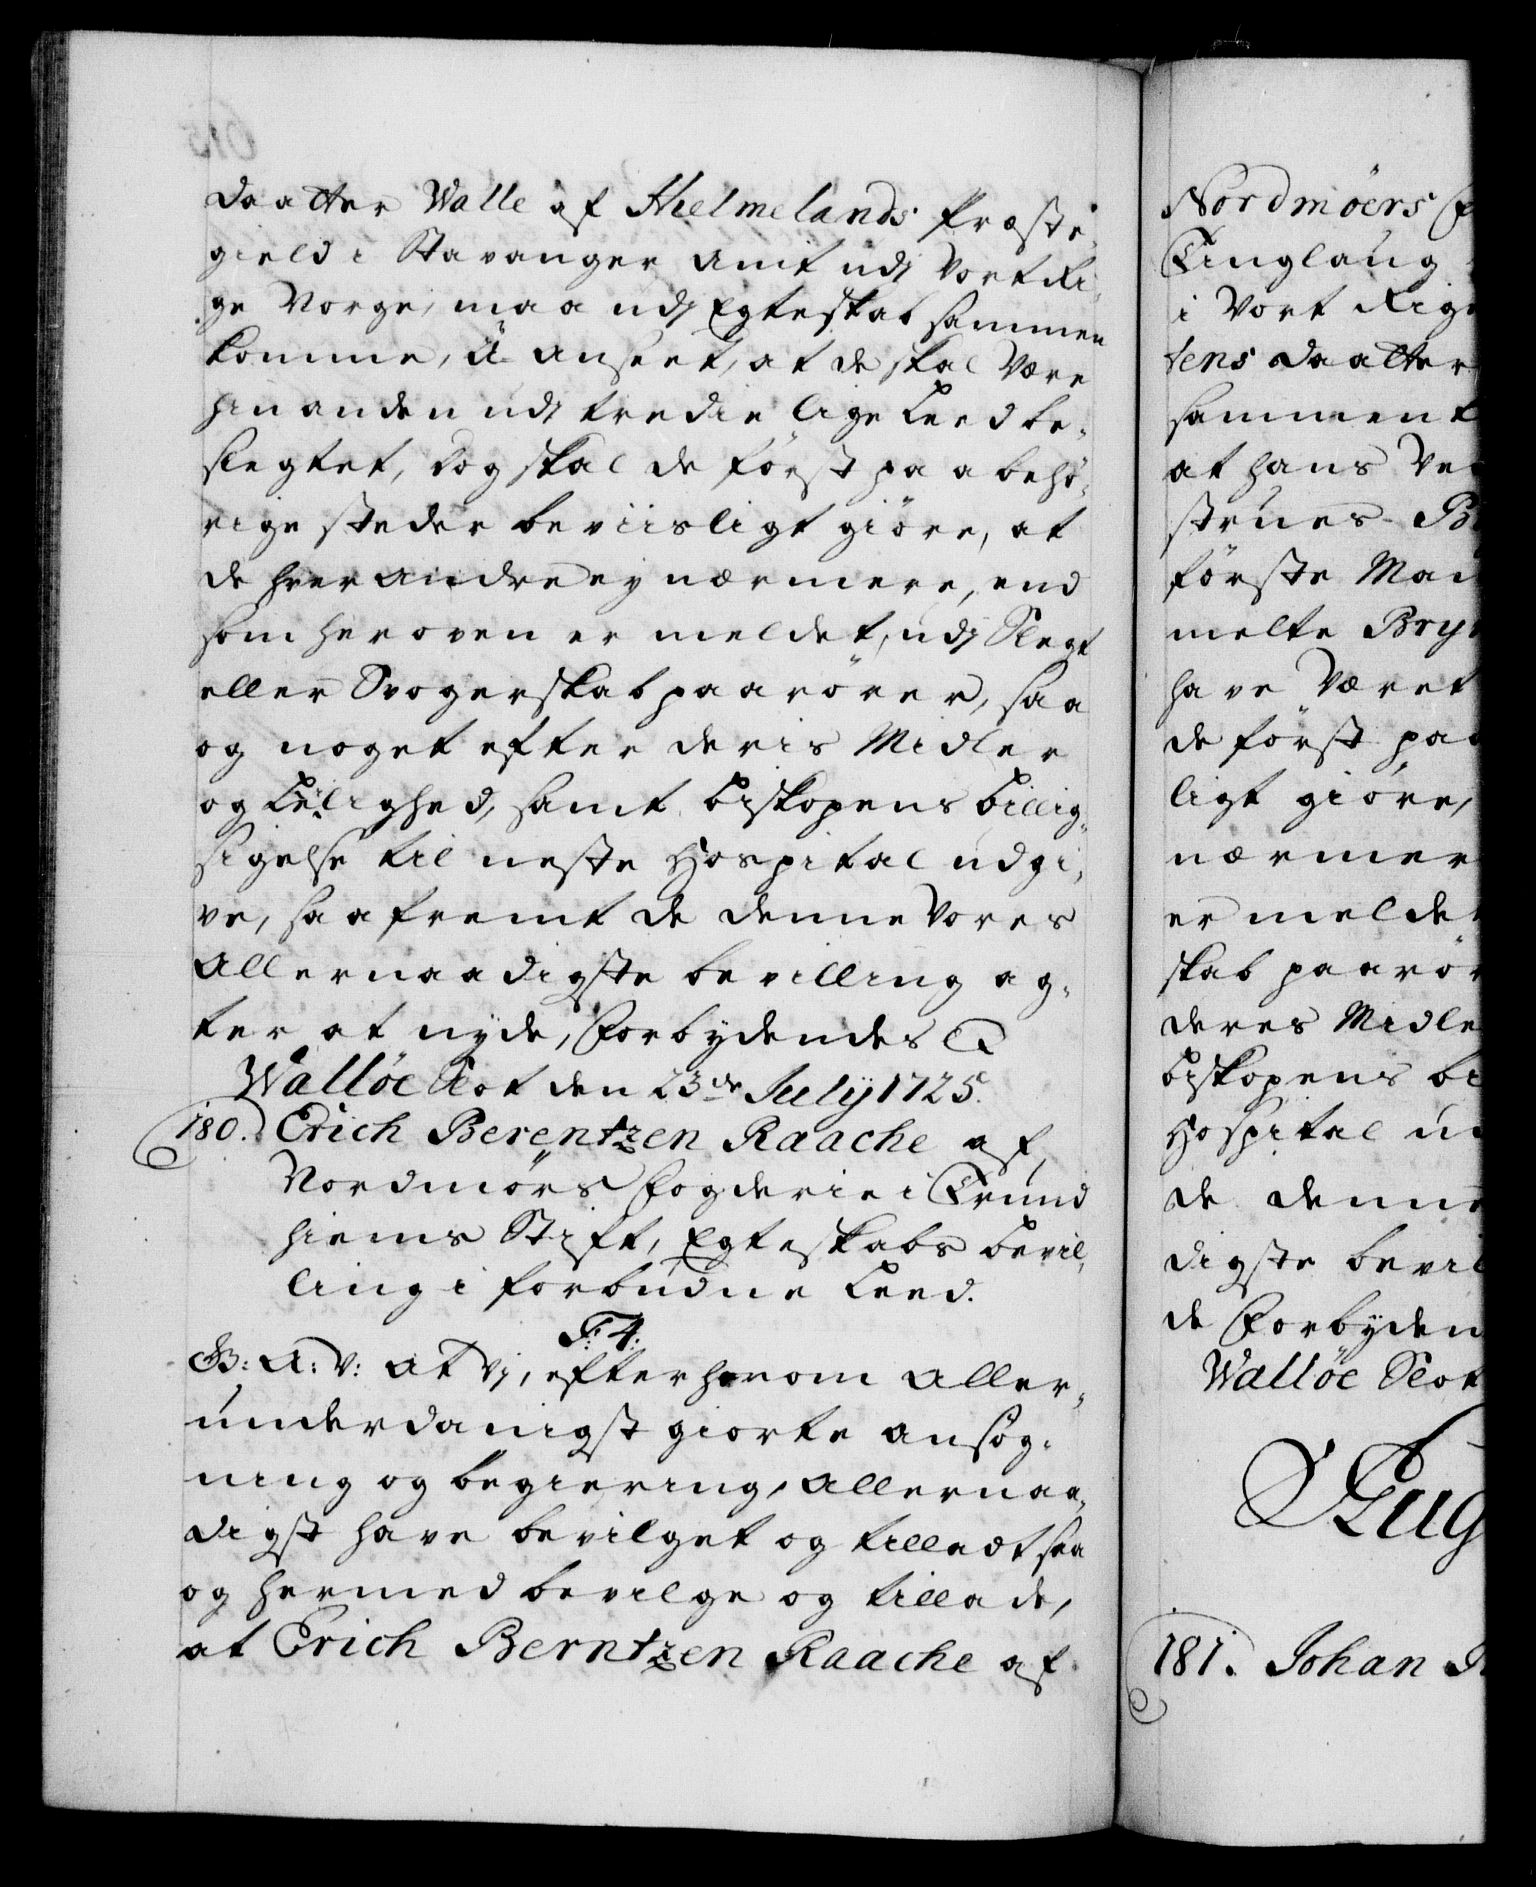 daatter Walle af Hielmelands Præste-
gield i Stavanger Amt udj Vort Ri-
ge Norge, maa udj Egteskab sammen
komme, U-anseet, at de skal Være
hinanden udj tredie lige Leed be-
slegtet, dog skal de först paa behö-
rige steder beviisligt giöre, at
de hver andre ey nærmere, end
som her oven er meldet, udj Slegt
eller Svogerskab paarörer, saa
og noget efter deris Midler
og Leylighed, samt biskopens billig-
sigelse til neste Hospital udgi-
ve, saafremt de denne Vores
Allernaadigste bevilling ag-
ter at nyde, Forbydendes &
Wallöe Slot den 23de Julij 1725.
180. Erich Berentzen Raache af,
Nordmörs Fogderie i Trund
hiems Stift, Egteskabs bevil-
ling i forbudne Leed.
F: 4:
G: A: V: At Vj, efter herom Aller-
underdanigst giorte ansög-
ning og begiering, Allernaa-
digst have bevilget og tilladt saa
og hermed bevilge og tillade,
at Erich Berntzen Raache af
Nordmöers
Tinglaug
i Vort Rige
tens daatter
sammen
at hans
strues
förste
melte
have Været
de först paa
ligt giöre,
nærmer
er meldet
skab paarör
deres Midle
biskopens bi
Hospital
de denne
digste bevil
de Forbyden
Wallöe Slot
181. Johan